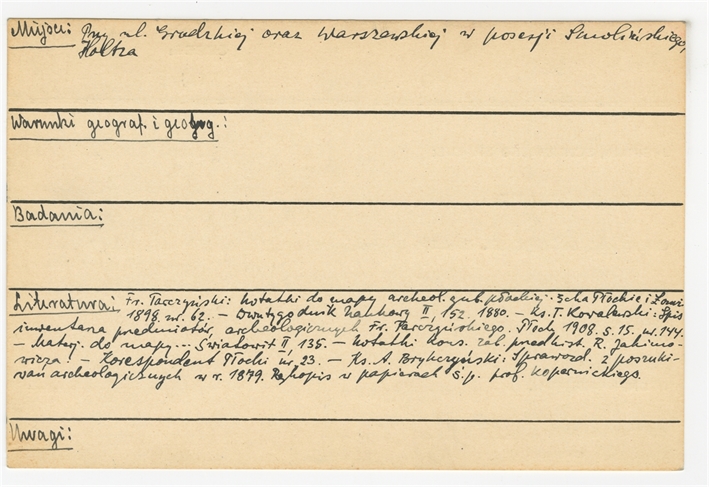 Miejsce: Przy ul. Grodzkiej oraz Warszewskiej w posesji Smolińskiego,
Holtza
Warunki geograf. i geolog.:
Badania:
Literatura: Fr. Tarczyński: Notatki do mapy archeol. gub. płockiej. Echa Płockie i Łomż.
1898. nr. 62. – Dwutygodnik Naukowy II, 152. 1880. – Ks. T. Kowalewski: Spis
inwentarza przedmiotów archeologicznych Fr. Tarczyńskiego. Płock 1908. S. 15. nr. 144.
– Materj. do mapy... Światowit II, 135. – Notatki kons. zab. przedhist. R. Jakimo-
wicza. – Korespondent Płocki nr. 23. – Ks. A. : Sprawozd. z poszuki-
wań archeologicznych w r. 1879. Rękopis w papierach ś.p. prof. Kopernickiego.
Uwagi: